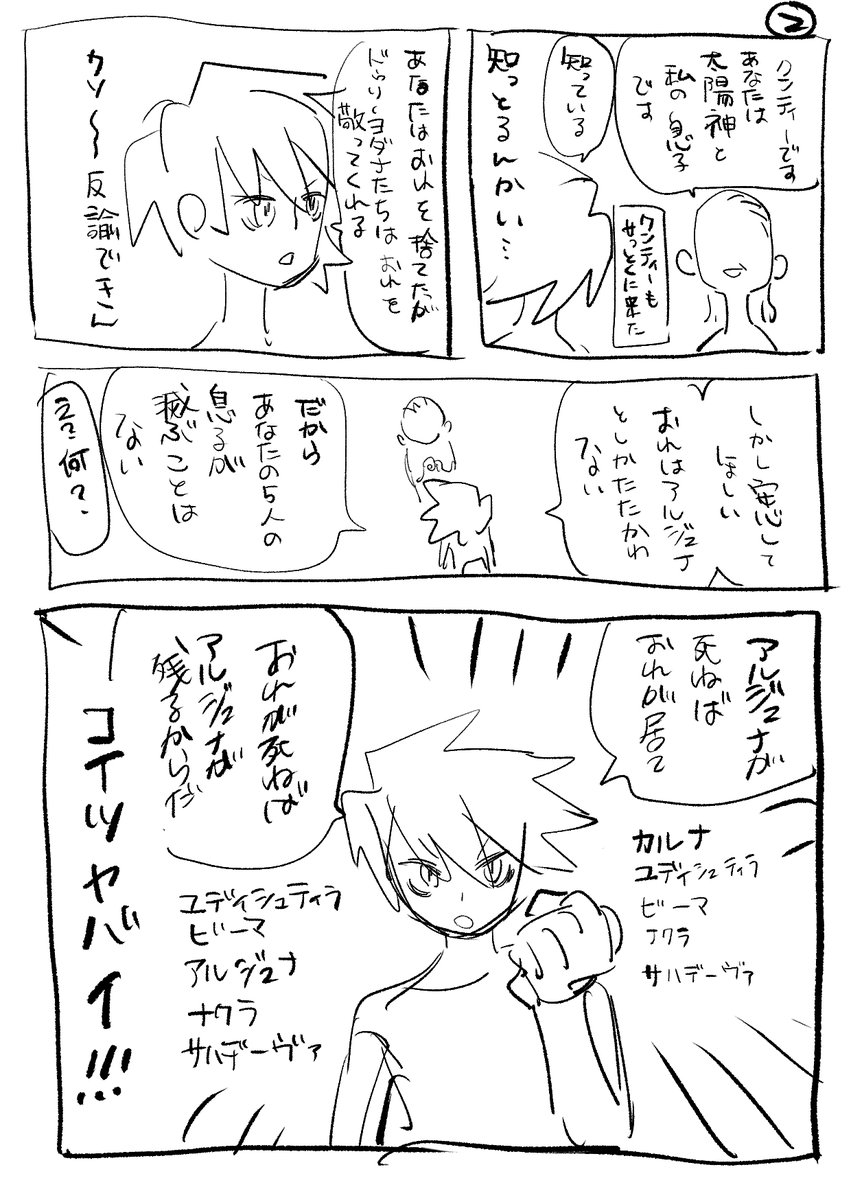 2
クンティーです
あなたは
太陽神と
私の息子
です
知っている
知っとるんかい…
クンティーも
さっそくに来た
あなたはおれを捨てたが
ドゥリーヨダナたちはおれを
敬ってくれる
クソ〜〜反論できん
しかし安心して
ほしい
おれはアルジュナ
としかたたかわ
ない
だから
あなたの5人の
息子が
滅ぶことは
ない
え?何?
アルジュナが
死ねば
おれが居て
カルナ
ユディシュティラ
ビーマ
ナクラ
サハデーヴァ
おれが死ねば
アルジュナが
残るからだ
ユディシュティラ
ビーマ
アルジュナ
ナクラ
サハデーヴァ
コイツヤバイ!!!